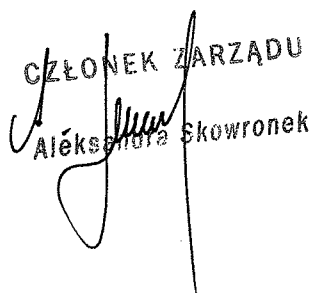 CZŁONEK ZARZĄDU
Aleksandra Skowronek